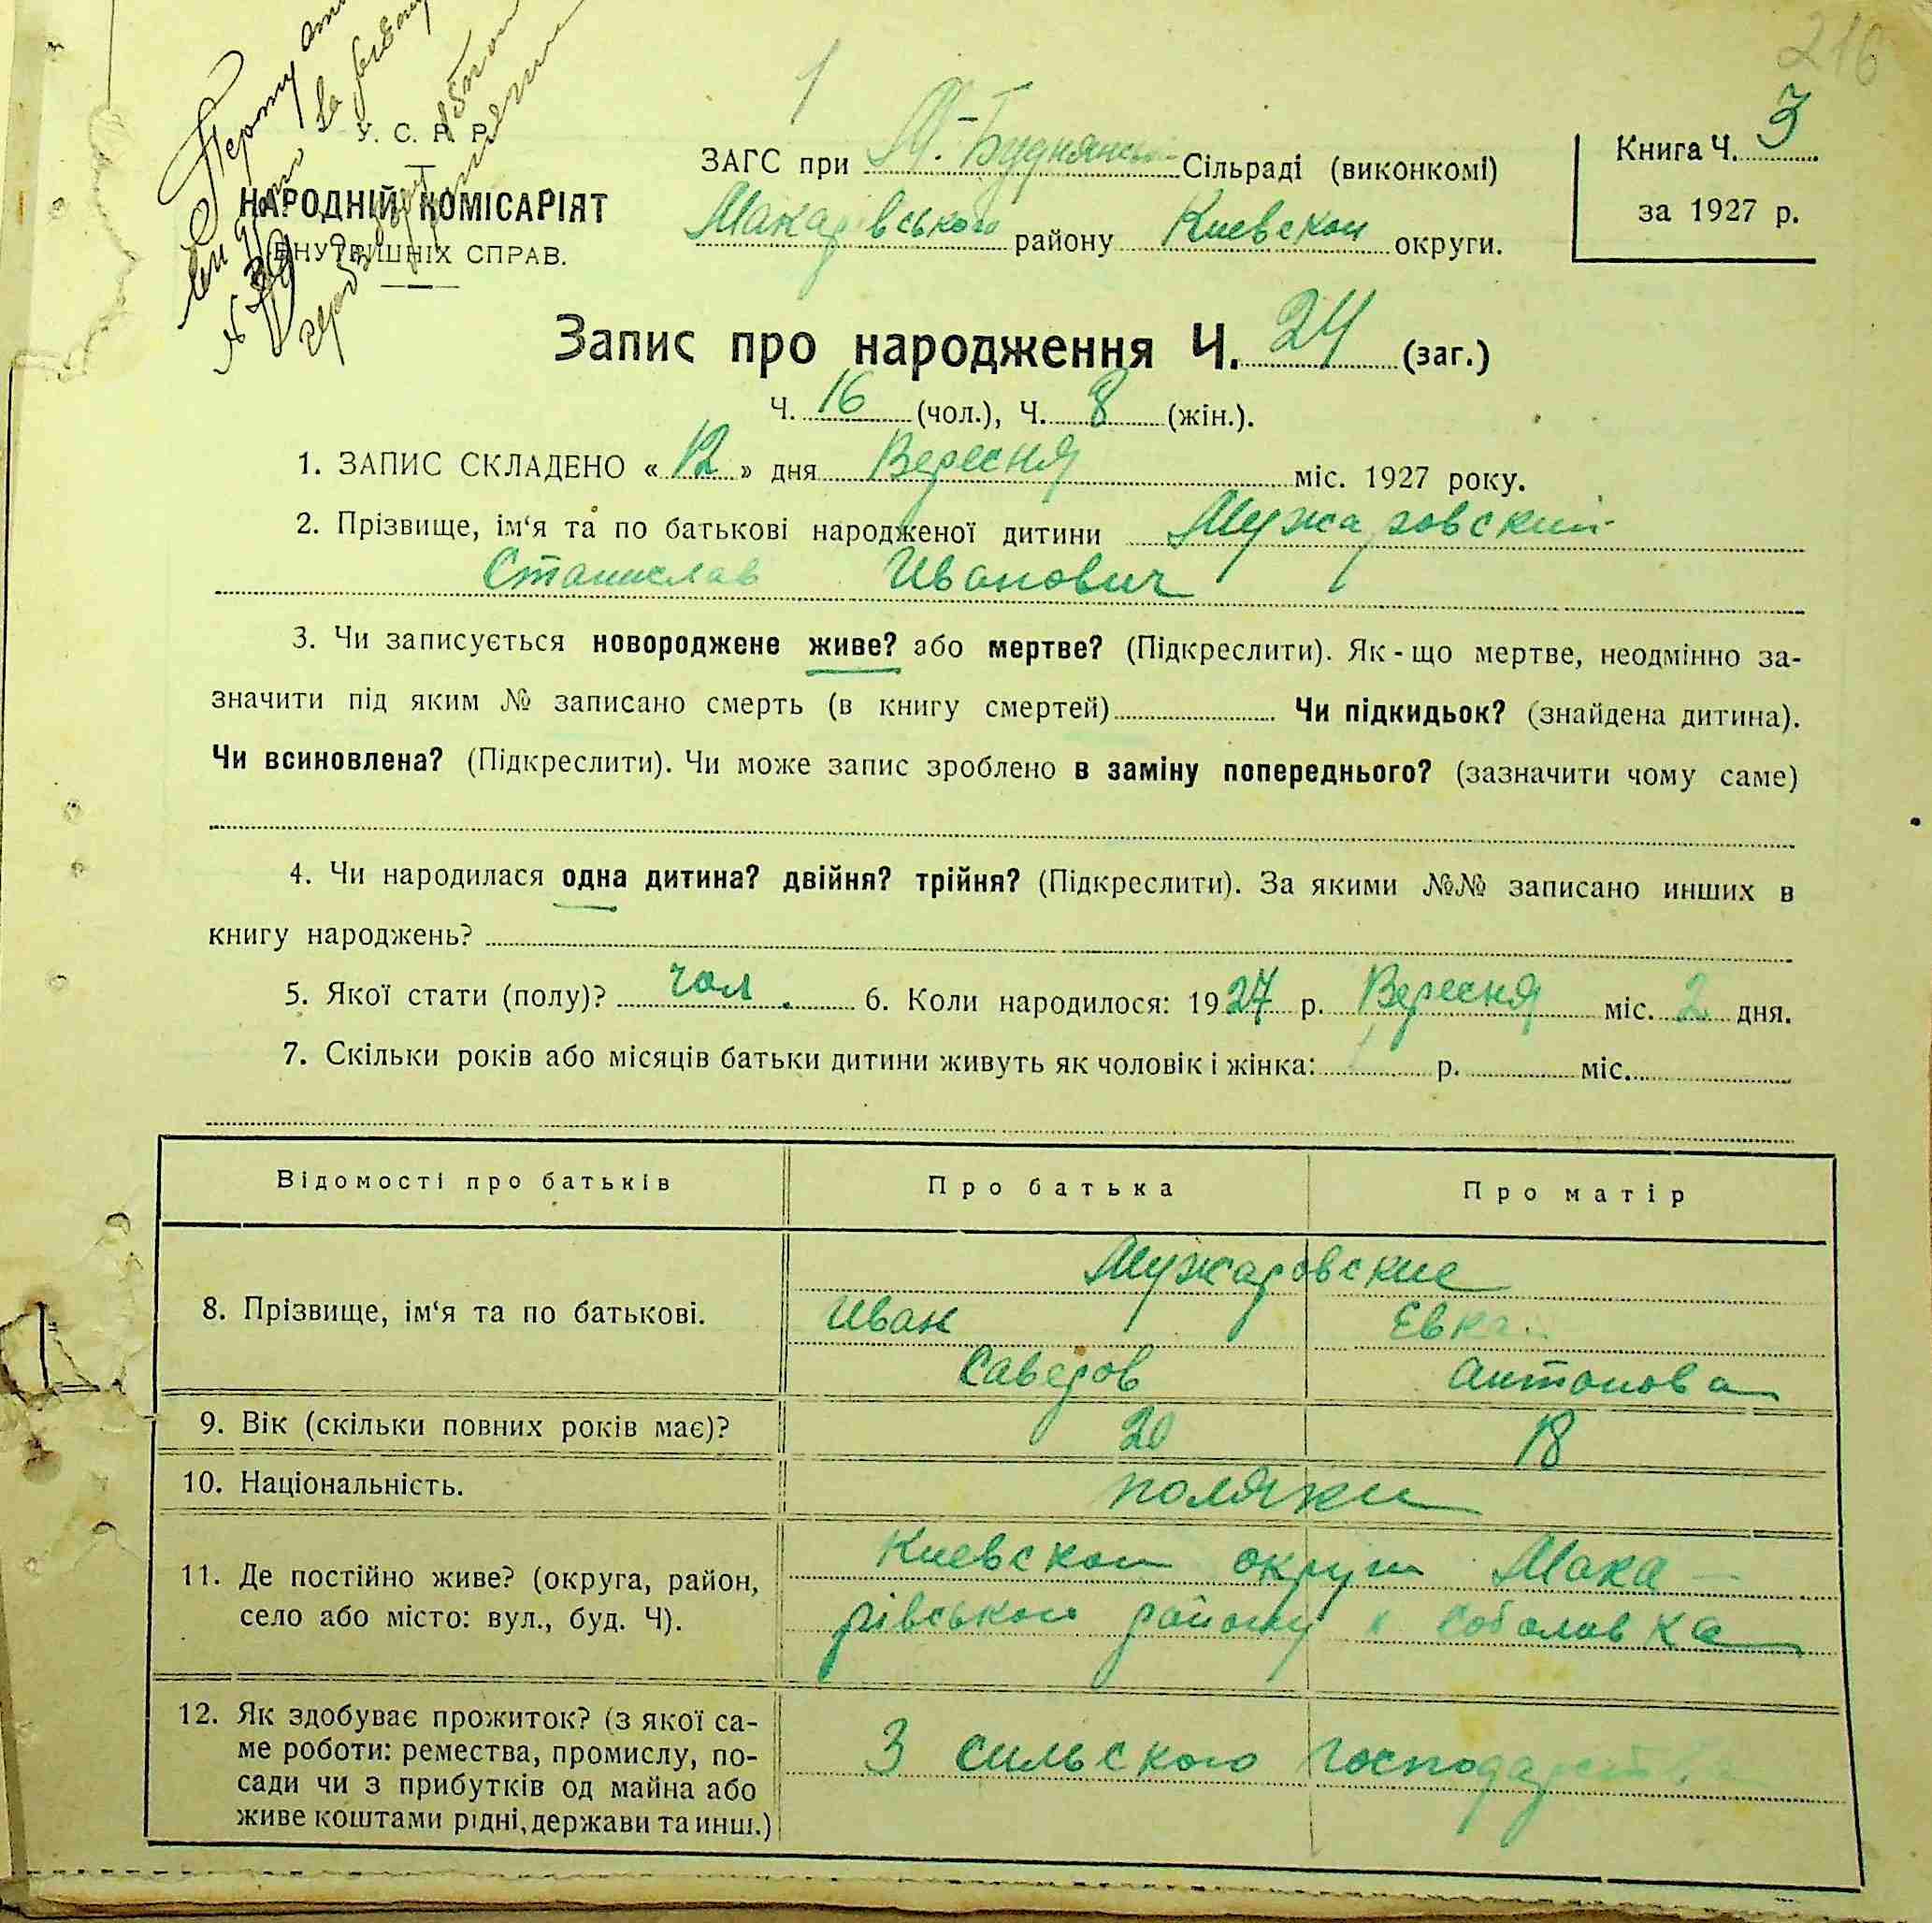 216
У. С. Р. Р.
НАРОДНІЙ КОМІСАРІЯТ
ВНУТРІШНІХ СПРАВ.
ЗАГС при М.-Буднянс Сільраді (виконкомі)
Макарівського району Киевской округи.
Книга Ч. 3
за 1927 р.
Запис про народження Ч. 24 (заг.)
Ч. 16 (чол.), Ч. 8 (жін.).
1. ЗАПИС СКЛАДЕНО « 12 » дня Вересня міс. 1927 року.
2. Прізвище, ім‘я та по батькові народженої дитини Мужаровский
Станислав Иванович
3. Чи записується новороджене живе? або мертве? (Підкреслити). Як-що мертве, неодмінно за-
значити під яким № записано смерть (в книгу смертей) Чи підкидьок? (знайдена дитина).
Чи всиновлена? (Підкреслити). Чи може запис зроблено в заміну попереднього? (зазначити чому саме)
4. Чи народилася одна дитина? двійня? трійня? (Підкреслити). За якими №№ записано инших в
книгу народжень?
5. Якої стати (полу)? чол. 6. Коли народилося: 1927 р. Вересня міс. 2 дня.
7. Скільки років або місяців батьки дитини живуть як чоловік і жінка: р. міс.
Відомості про батьків Про батька Про матір
8. Прізвище, ім‘я та по батькові.
Мужаровские
Иван Евка
Саверов Антонова
9. Вік (скільки повних років має)? 20 18
10. Національність. поляки
11. Де постійно живе? (округа, район,
село або місто: вул., буд. Ч).
Киевской округи Мака-
рівського району к Соболовка
12. Як здобуває прожиток? (з якої са-
ме роботи: ремества, промислу, по-
сади чи з прибутків од майна або
живе коштами рідні, держави та инш.)
З сильского господарства